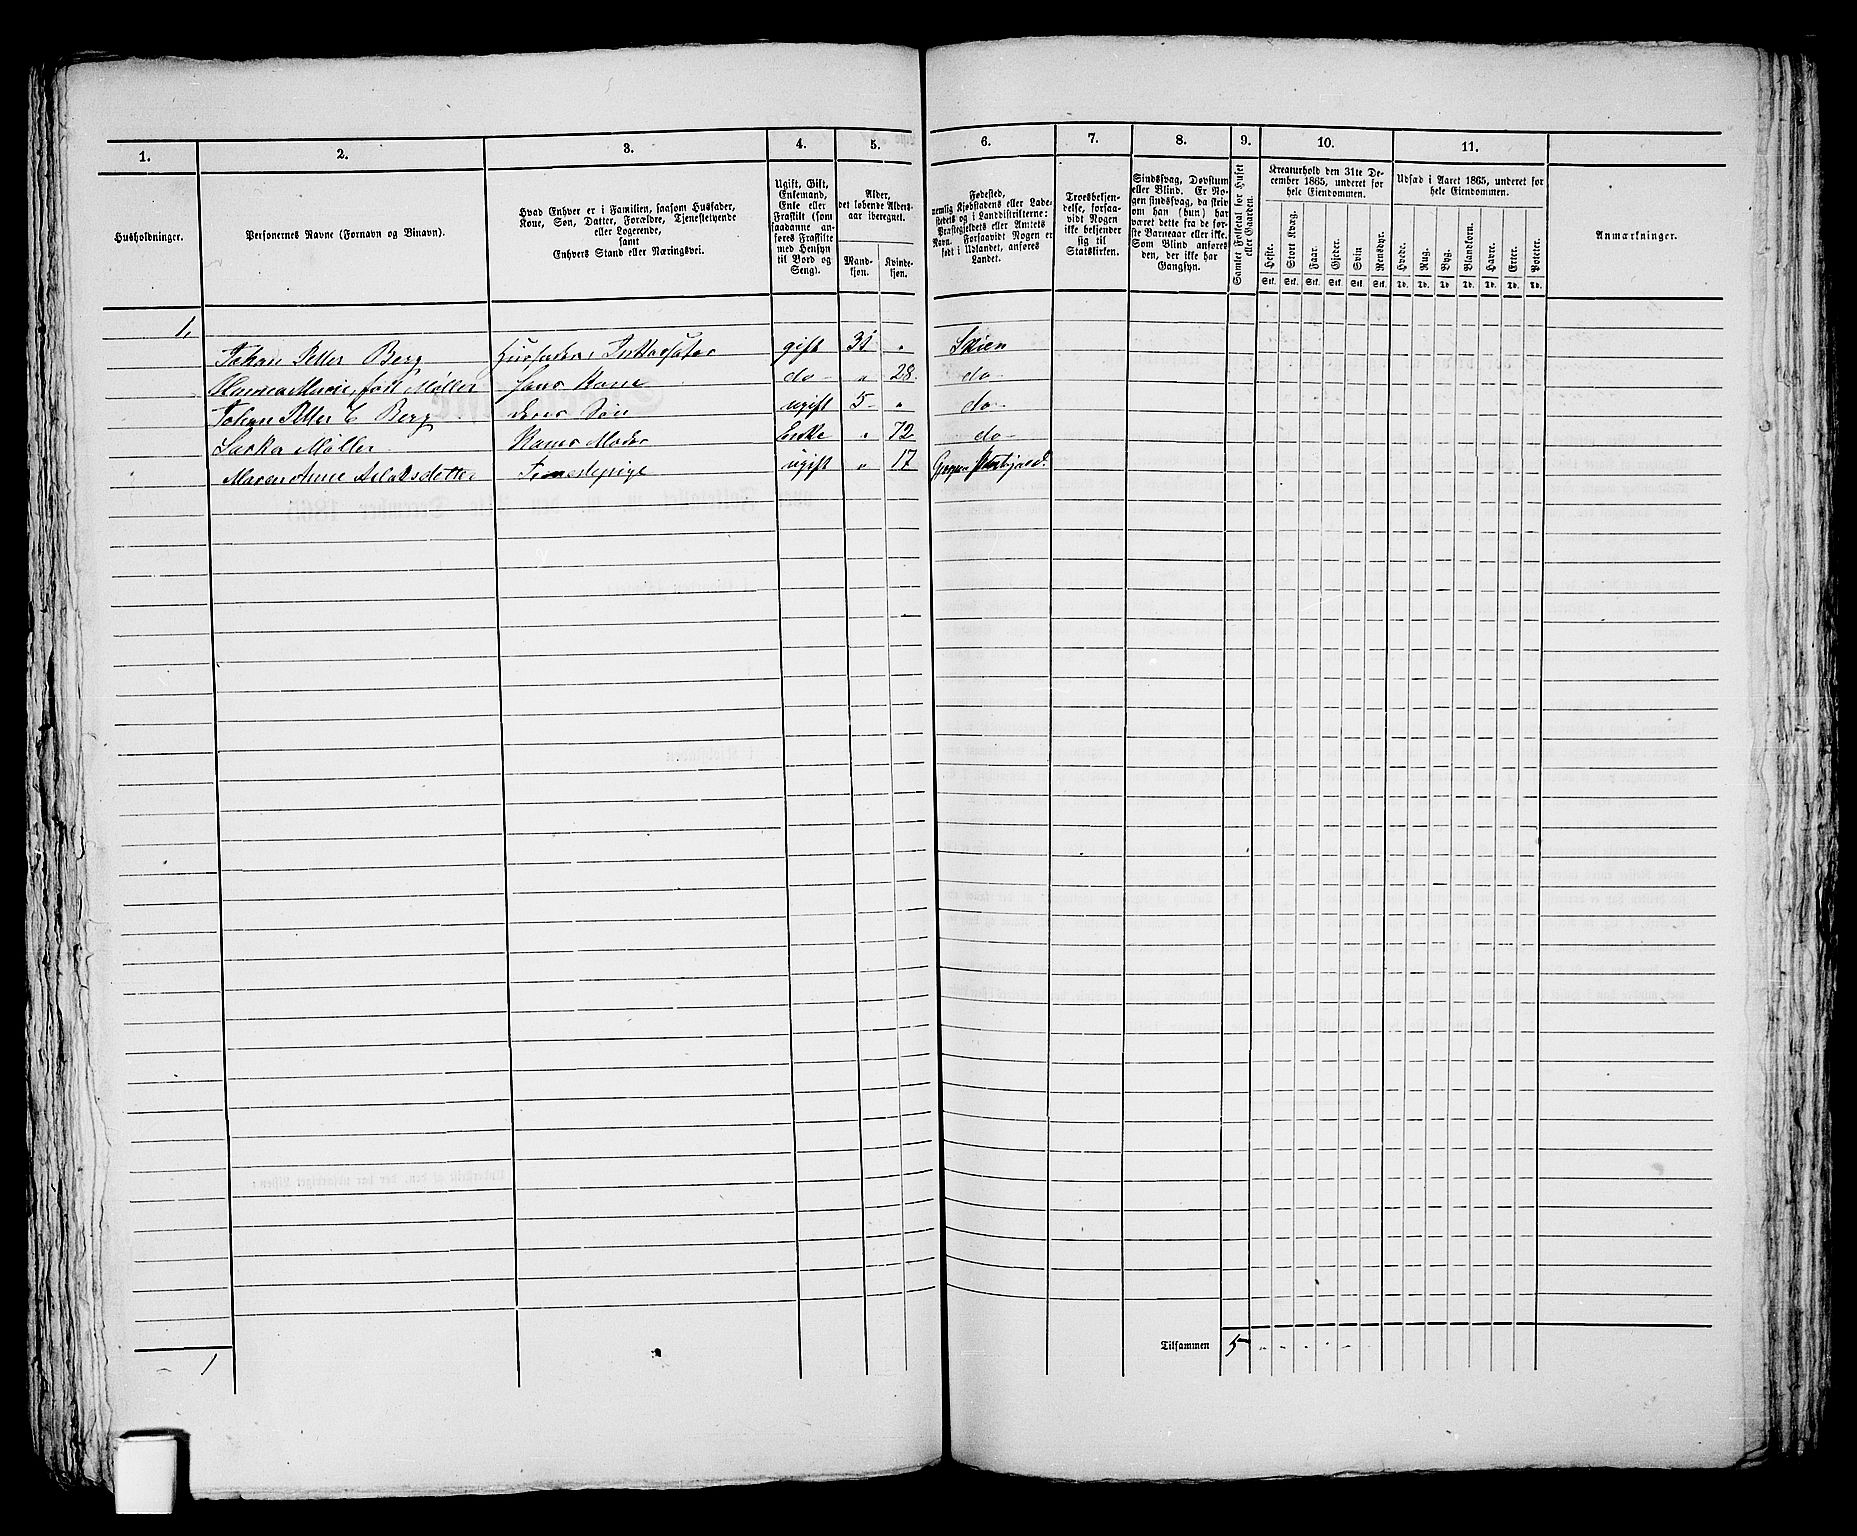 1. 2. 3. 4. 5. 6. 7. 8. 9. 10. 11.
Husholdninger.
Personernes Navne (Fornavn og Binavn).
Hvad Enhver er i Familien, saasom Husfader,
Kone, Søn, Datter, Forældre, Tjenestetyende
eller Logerende,
samt
Enhvers Stand eller Næringsvei.
Ugift, Gift,
Enkemand,
Enke eller
Fraskilt (som
saadanne an-
føres Fraskilte
med Hensyn
til Bord og
Seng).
Alder,
det løbende Alders-
aar iberegnet.
Mand-
kjøn.
Kvinde-
kjøn.
Fødested,
nemlig Kjøbstadens eller Lade-
stedets og i Landdistrikterne:
Præstegjeldets eller Amtets
Navn. Forsaavidt Nogen er
født i Udlandet, anføres
Landet.
Troesbekjen-
delse, forsaa-
vidt Nogen
ikke bekjender
sig til
Statskirken.
Sindssvag, Døvstum
eller Blind. Er No-
gen sindssvag, da skriv
om han (hun) har
været dette fra de før-
ste Barneaar eller ikke.
Som Blind anføres
den, der ikke har
Gangsyn.
Samlet Folketal for Huset
eller Gaarden.
Kreaturhold den 31te De-
cember 1865, underet for
hele Eiendommen.
Heste. Stort Kvæg. Faar. Gjeder. Svin Rensdyr.
Stk. Stk. Stk. Stk. Stk. Stk.
Udsæd i Aaret 1865, underet for
hele Eiendommen.
Hvede. Rug. Byg. Blandkorn. Havre. Erter. Poteter.
Td. Td. Td. Td. Td. Td. Td.
Anmærkninger.
1,
Johan Petter Berg Husfader, gift 31 " Skien
Møller Hans Kone do- " 28. do-
Johan Petter C Berg deres Søn ugift 5- " do-
Møller Kones Moder Enke " 72 do-
Maren Anne Aslaksdatter Tjenestepige ugift " 17
1
Tilsammen 5